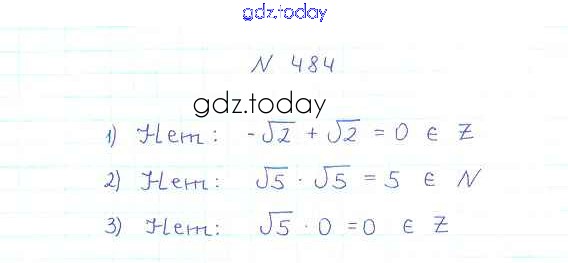 gdz.today
N 484
gdz.today
1) Нет: -√2 + √2 = 0 ∈ Z
2) Нет: √5 · √5 = 5 ∈ N
3) Нет: √5 · 0 = 0 ∈ Z